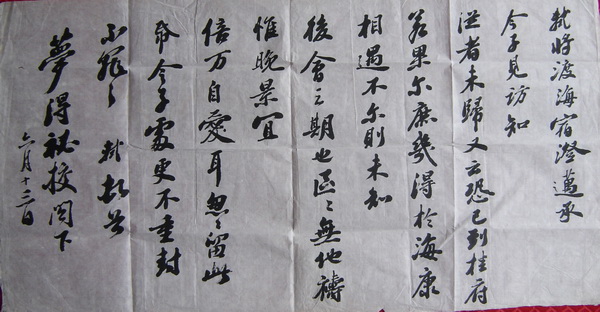 軾將渡海宿澄邁承
令子見訪知
從者未歸又云恐已到桂府
若果尔庶幾得於海康
相遇不尔則未知
後會之期也區〻無他禱
惟晚景宜
倍万自愛耳忽〻留此
帋令子處更不重封
不罪〻 軾頓首
夢得祕校閣下
六月十三日